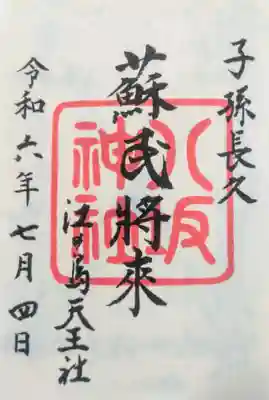 子孫長久
蘇民將來
八坂神社
江の島天王社
令和六年七月四日